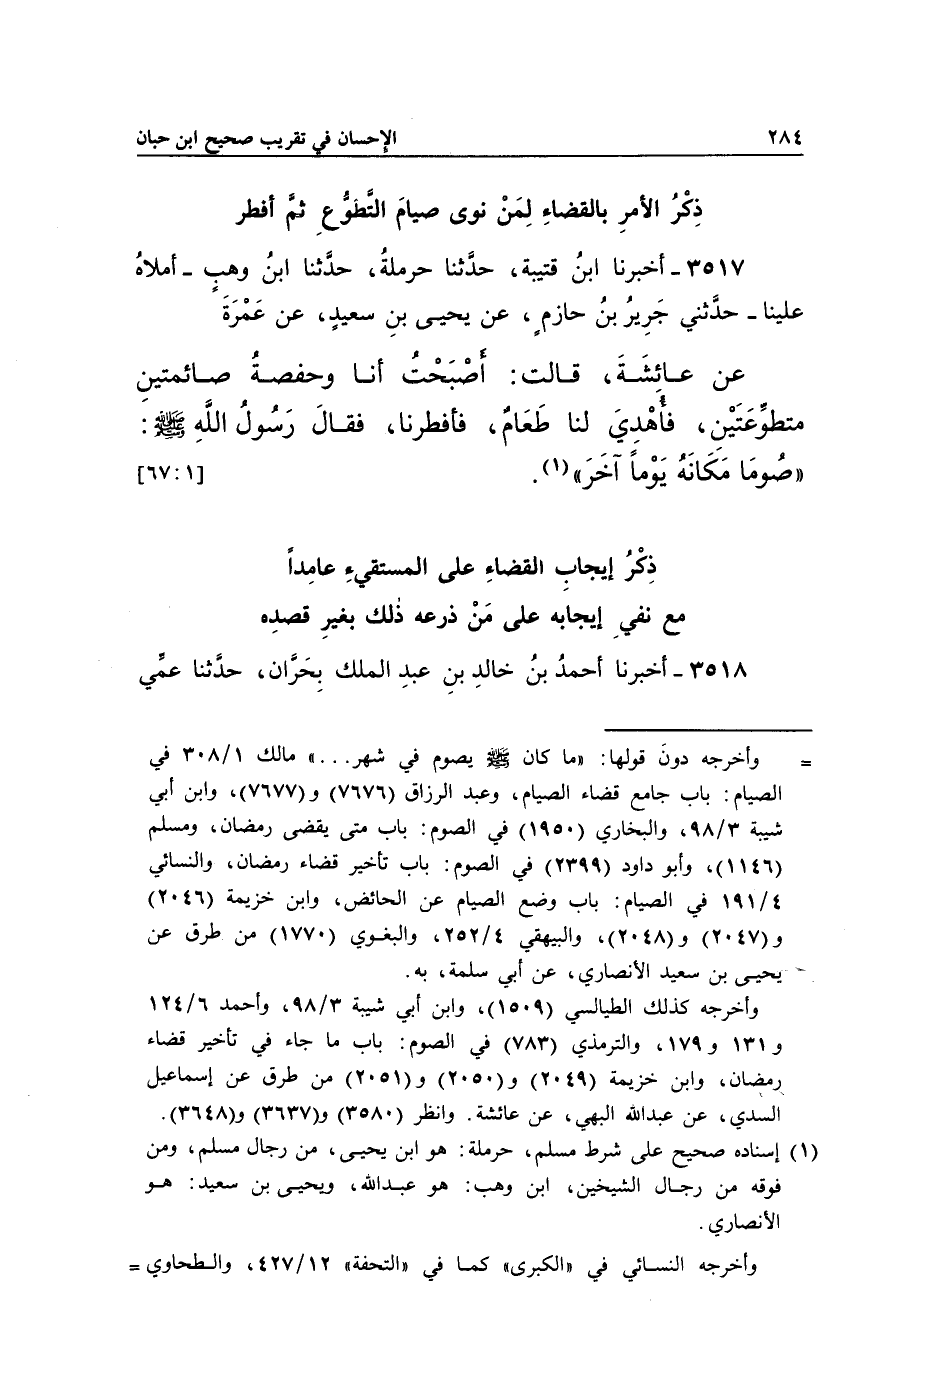 ٢٨٤ الإحسان في تقريب صحيح ابن حبان
ذِكْرُ الأمرِ بالقضاءِ لِمَنْ نوى صيامَ التَّطَوُّعِ ثمَّ أفطر
٣٥١٧ ـ أخبرنا ابنُ قتيبة، حدَّثنا حرملةُ، حدَّثنا ابنُ وهبٍ ـ أملاهُ
علينا ـ حدَّثني جَرِيرُ بنُ حازمٍ، عن يحيى بنِ سعيدٍ، عن عَمْرَةَ
عن عـائِشَةَ، قـالت: أَصْبَحْتُ أنـا وحفصـةُ صـائمتينِ
متطوِّعَتَيْنِ، فأُهْدِيَ لنا طَعَامٌ، فأفطرنا، فقـالَ رَسُولُ اللَّهِ ﷺ:
«صُومَا مَكَانَهُ يَوْماً آخَرَ»(١). [١: ٦٧]
ذِكْرُ إيجابِ القضاءِ على المستقيءِ عامِداً
مع نفيِ إيجابه على مَنْ ذرعه ذٰلك بغيرِ قصدِه
٣٥١٨ ـ أخبرنا أحمدُ بنُ خالدِ بنِ عبدِ الملك بِحَرَّان، حدَّثنا عمِّي
= وأخرجه دونَ قولها: «ما كان ﷺ يصوم في شهر...» مالك ٣٠٨/١ في
الصيام: باب جامع قضاء الصيام، وعبد الرزاق (٧٦٧٦) و(٧٦٧٧)، وابن أبي
شيبة ٩٨/٣، والبخاري (١٩٥٠) في الصوم: باب متى يقضى رمضان، ومسلم
(١١٤٦)، وأبو داود (٢٣٩٩) في الصوم: باب تأخير قضاء رمضان، والنسائي
١٩١/٤ في الصيام: باب وضع الصيام عن الحائض، وابن خزيمة (٢٠٤٦)
و(٢٠٤٧) و(٢٠٤٨)، والبيهقي ٢٥٢/٤، والبغوي (١٧٧٠) من طرق عن
يحيى بن سعيد الأنصاري، عن أبي سلمة، به.
وأخرجه كذلك الطيالسي (١٥٠٩)، وابن أبي شيبة ٩٨/٣، وأحمد ١٢٤/٦
و١٣١ و١٧٩، والترمذي (٧٨٣) في الصوم: باب ما جاء في تأخير قضاء
رمضان، وابن خزيمة (٢٠٤٩) و(٢٠٥٠) و(٢٠٥١) من طرق عن إسماعيل
السدي، عن عبدالله البهي، عن عائشة. وانظر (٣٥٨٠) و(٣٦٣٧) و(٣٦٤٨).
(١) إسناده صحيح على شرط مسلم، حرملة: هو ابن يحيى، من رجال مسلم، ومن
فوقه من رجال الشيخين، ابن وهب: هو عبدالله، ويحيى بن سعيد: هـو
الأنصاري.
وأخرجه النسـائي في «الكبرى» كمـا في «التحفة» ٤٢٧/١٢، والـطحاوي =